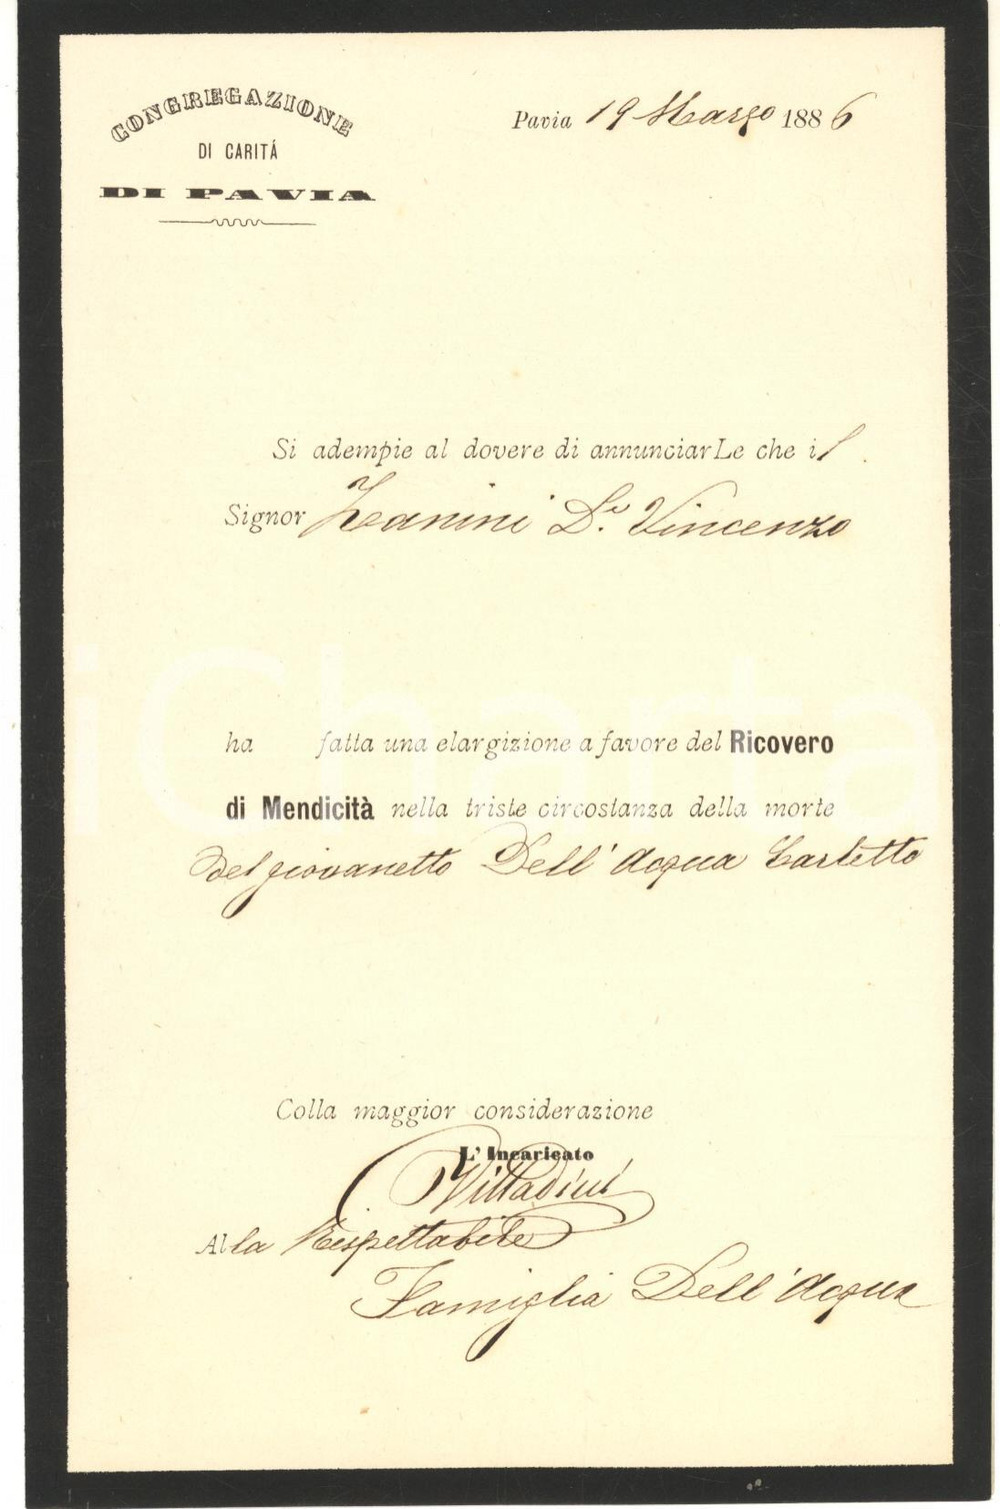 CONGREGAZIONE
DI CARITÁ
DI PAVIA
Pavia 19 Marzo 1886
Si adempie al dovere di annunciarLe che il
Signor Zanini Dr. Vincenzo
ha fatta una elargizione a favore del Ricovero
di Mendicità nella triste circostanza della morte
del giovanetto Dell'Acqua Carletto
Colla maggior considerazione
L'Incaricato
Villadini
Alla Rispettabile
Famiglia Dell'Acqua
iCharta